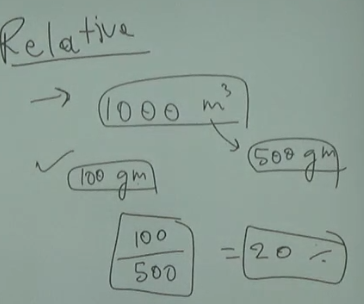 Relative
→ 1000 m³
500 gm
✓ 100 gm
100
500
= 20 %